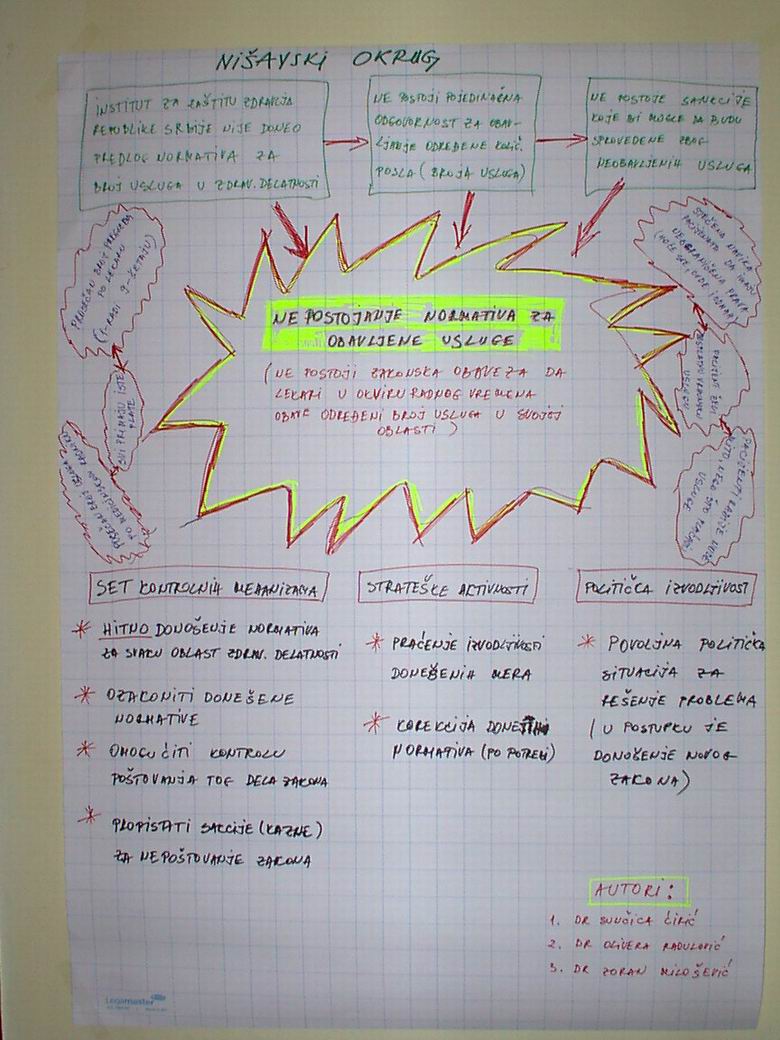 NIŠAVSKI OKRUG
INSTITUT ZA ZAŠTITU ZDRAVLJA
REPUBLIKE SRBIJE NIJE DONEO
PREDLOG NORMATIVA ZA
BROJ USLUGA U ZDRAV. DELATNOSTI
NE POSTOJI POJEDINAČNA
ODGOVORNOST ZA OBAV-
LJANJE ODREĐENE KOLIČ.
POSLA (BROJA USLUGA)
NE POSTOJE SANKCIJE
KOJE BI MOGLE DA BUDU
SPROVEDENE ZBOG
NEOBAVLJENIH USLUGA
PROSEČAN BROJ PREGLEDA
PO LEKARU
SVI PRIMAJU ISTE
PLATE
STEČENA NAVIKA
PACIJENATA DA IMAJU
NEOGRANIČENA PRAVA
NE POSTOJANJE NORMATIVA ZA
OBAVLJENE USLUGE
(NE POSTOJI ZAKONSKA OBAVEZA DA
LEKARI U OKVIRU RADNOG VREMENA
OBAVE ODREĐENI BROJ USLUGA U SVOJOJ
OBLASTI)
SET KONTROLNIH MEHANIZAMA
* HITNO DONOŠENJE NORMATIVA
ZA SVAKU OBLAST ZDRAV. DELATNOSTI
* OZAKONITI DONEŠENE
NORMATIVE
* OMOGUĆITI KONTROLU
POŠTOVANJA TOG DELA ZAKONA
* PROPISATI SAKCIJE (KAZNE)
ZA NEPOŠTOVANJE ZAKONA
STRATEŠKE AKTIVNOSTI
* PRAĆENJE IZVODLJIVOSTI
DONEŠENIH MERA
* KOREKCIJA
NORMATIVA (PO POTREBI)
POLITIČKA IZVODLJIVOST
* POVOLJNA POLITIČKA
SITUACIJA ZA
REŠENJE PROBLEMA
(U POSTUPKU JE
DONOŠENJE NOVOG
ZAKONA)
AUTORI:
1. DR ĆIRIĆ
2. DR OLIVERA RADULOVIĆ
3. DR ZORAN MILOŠEVIĆ
Legamaster